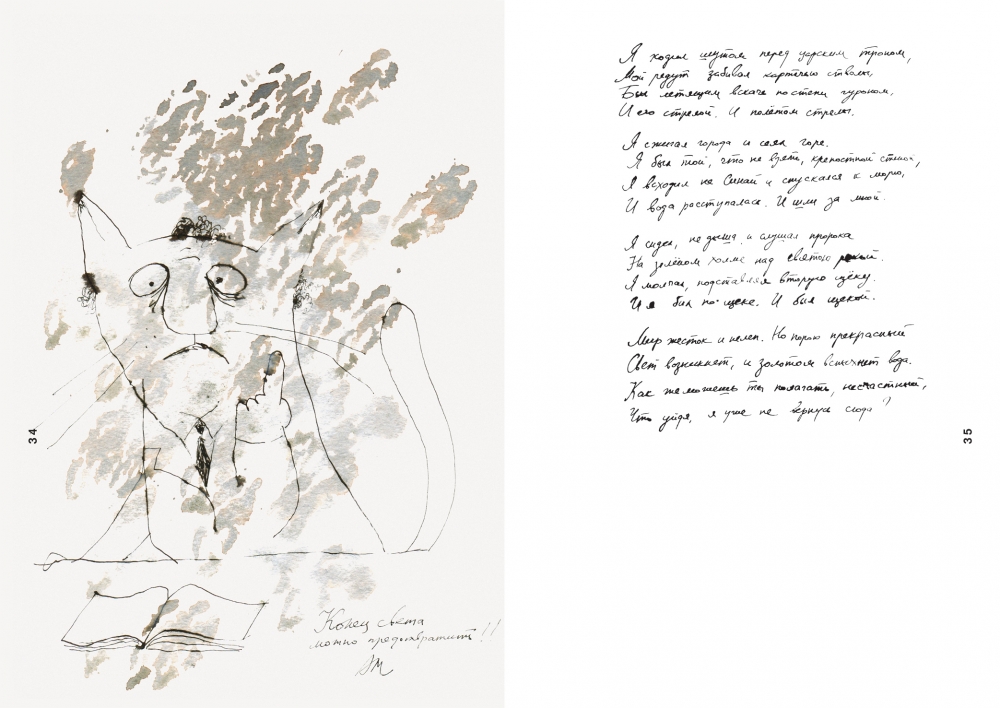 34
Конец света
можно предотвратить!!
ЯМ
Я ходил шутом перед царским троном,
Мой редут забивал картечью стволы,
Был летящим вскачь по степи гуроном,
И его стрелой. И полётом стрелы.
Я сжигал города и сеял горе.
Я был той, что не взять, крепостной стеной,
Я всходил на Синай и спускался к морю,
И вода расступалась. И шли за мной.
Я сидел, не дыша, и слушал пророка
На зелёном холме над святою рекой.
Я молчал, подставляя вторую щёку.
И я бил по щеке. И был щекой.
Мир жесток и нелеп. Но порою прекрасный
Свет возникнет, и золотом вспыхнет вода.
Как же можешь ты полагать, несчастный,
Что уйдя, я уже не вернусь сюда?
35